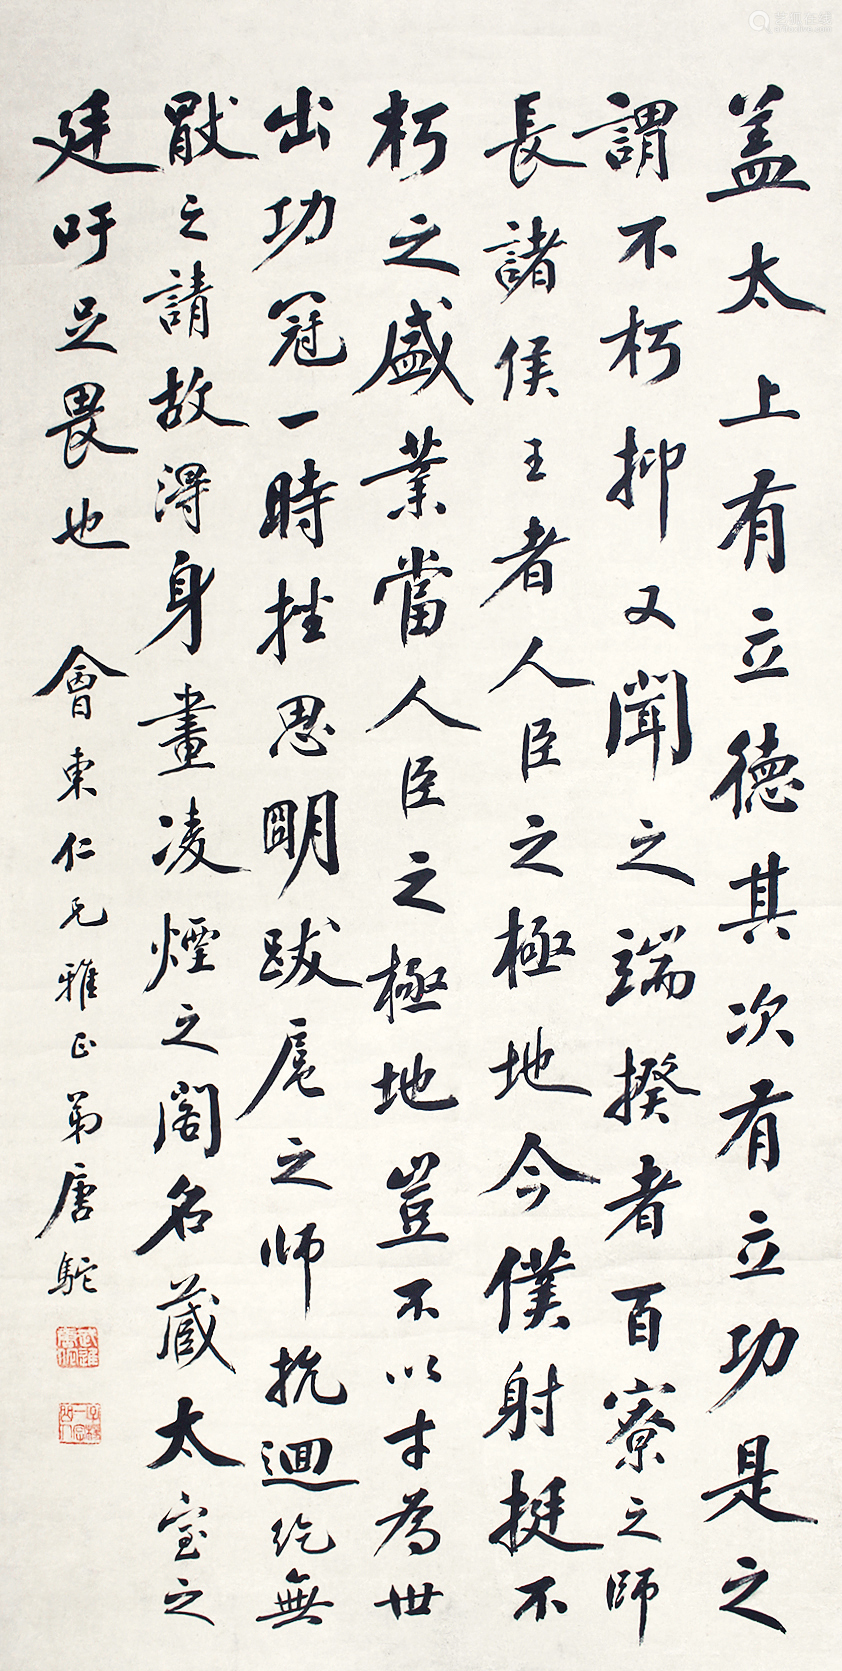 蓋太上有立德其次有立功是之
謂不朽抑又聞之端揆者百寮之師
長諸侯王者人臣之極地今僕射挺不
朽之盛業當人臣之極地豈不以才為世
出功冠一時挫思明跋扈之師抗迴紇無
厭之請故得身畫凌煙之閣名藏太室之
廷吁足畏也
會東仁兄雅正弟唐駝